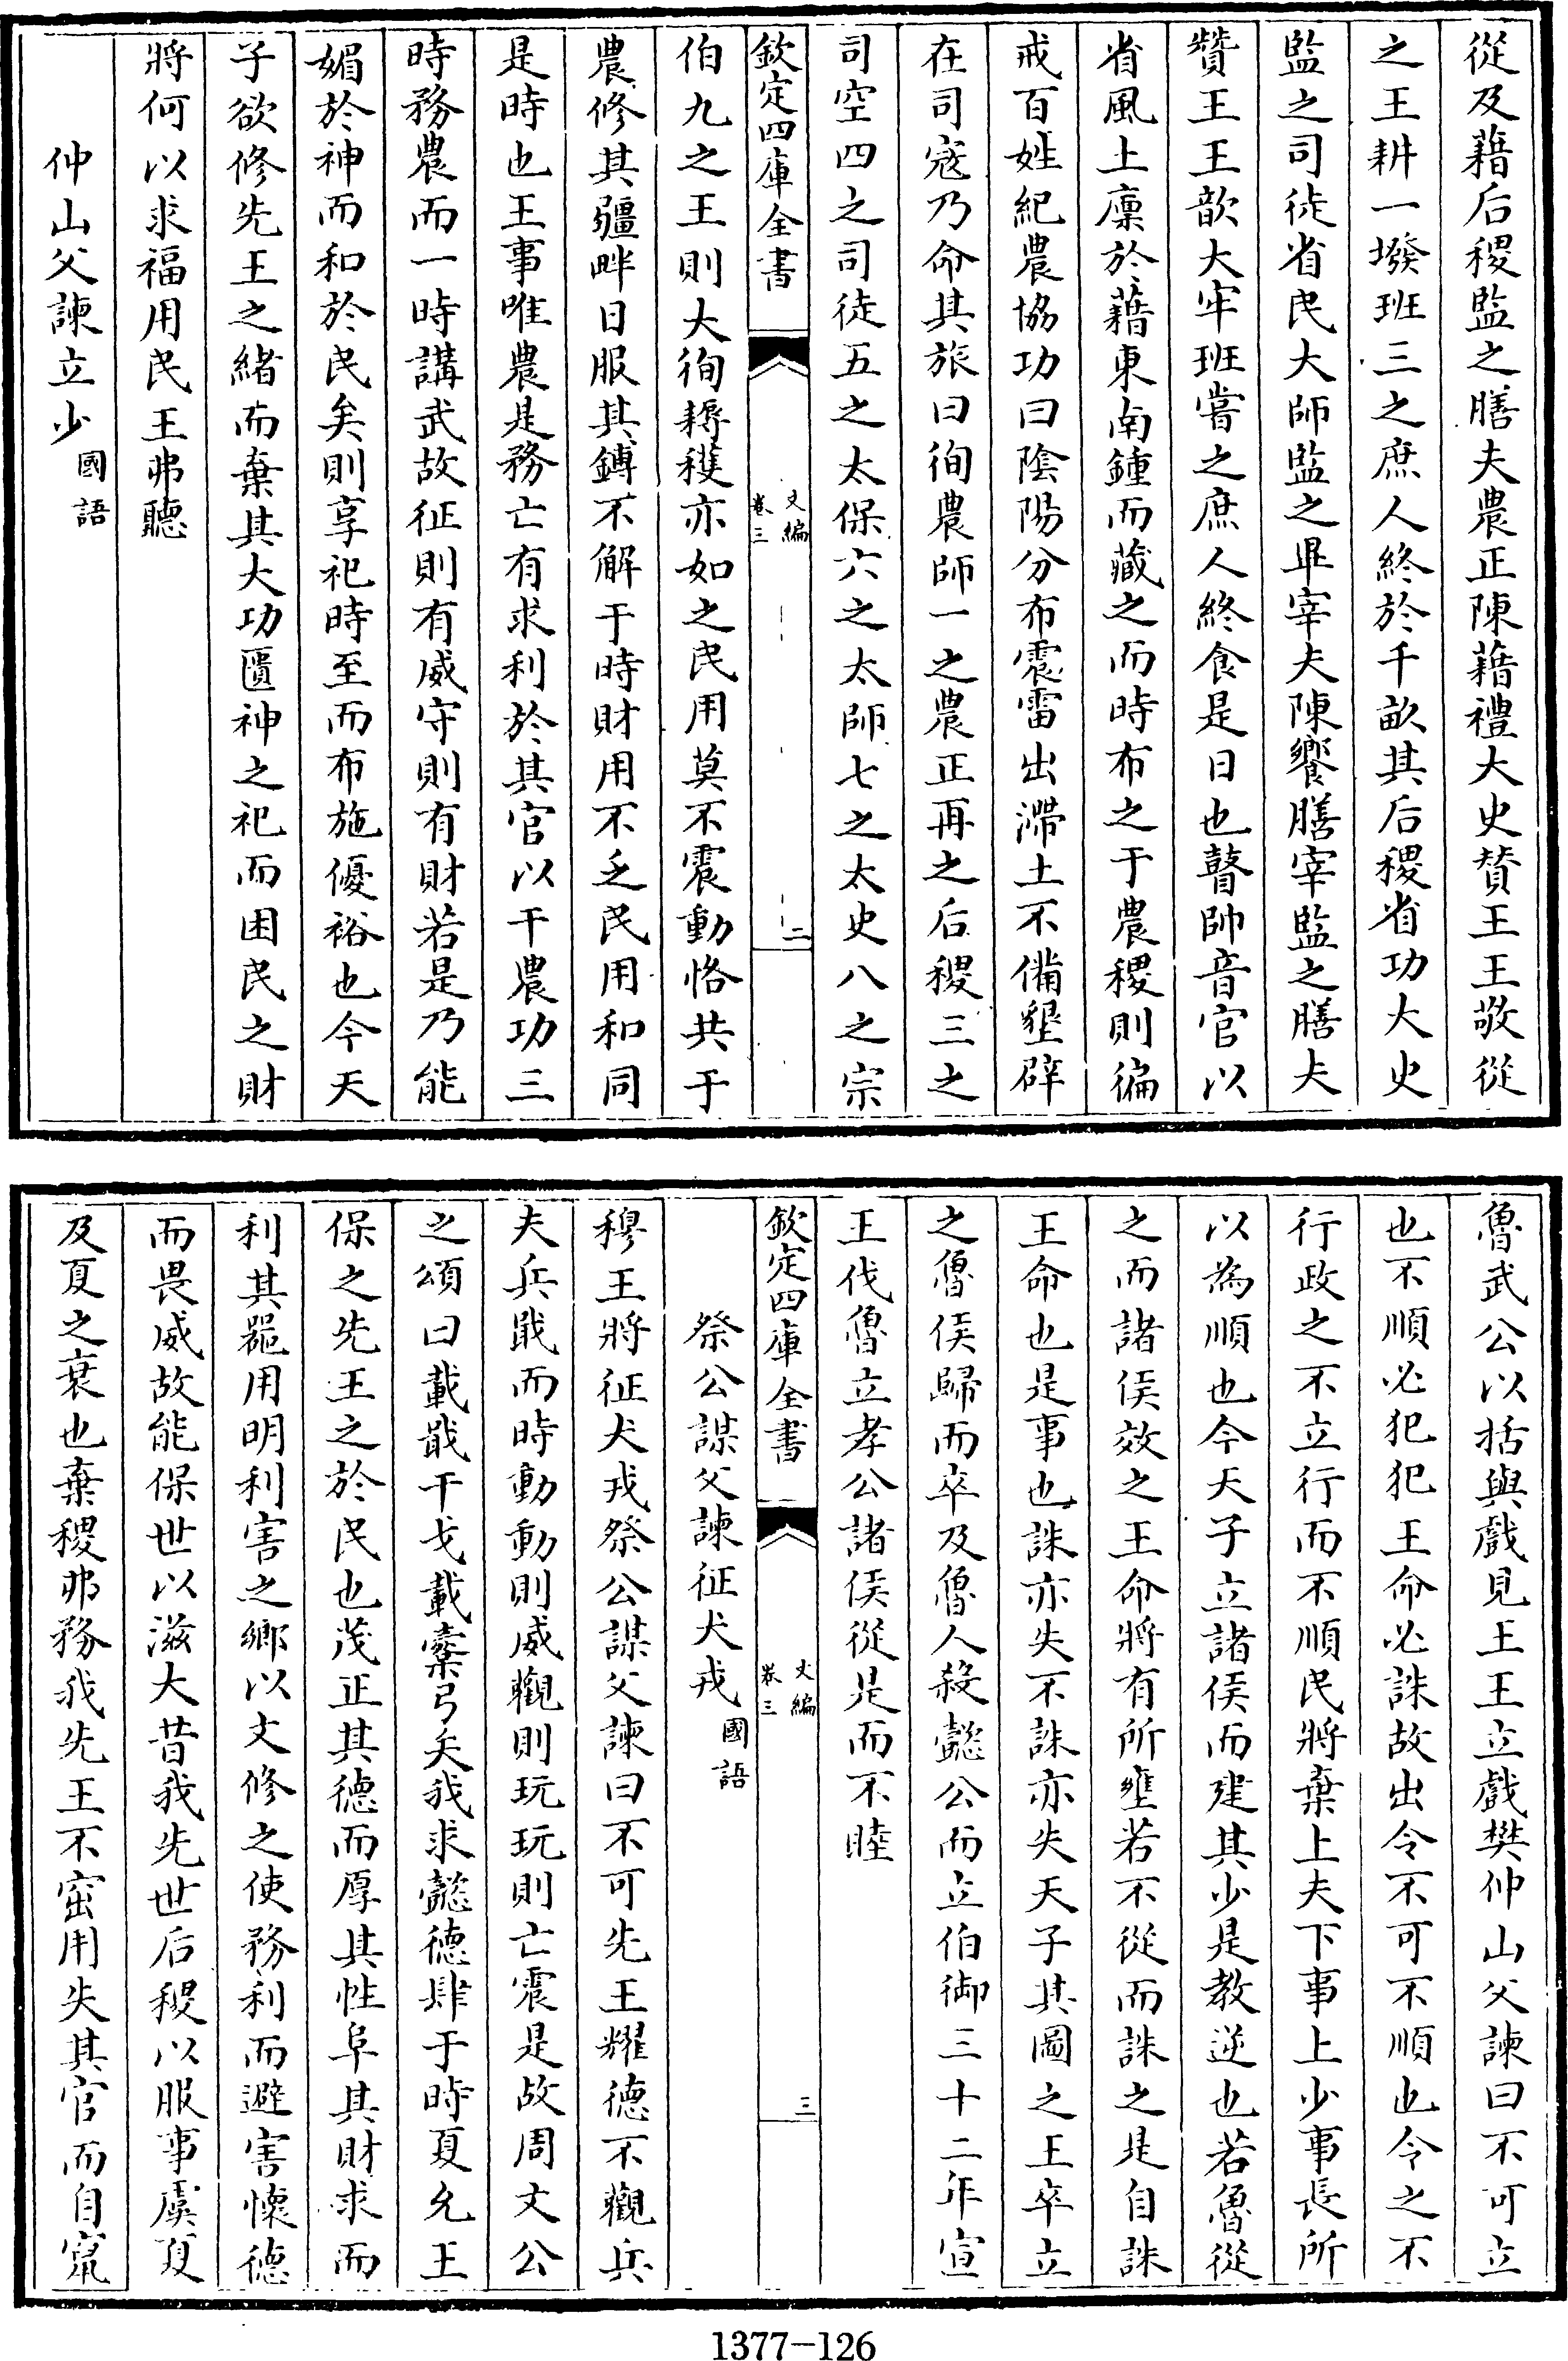 從及藉后稷監之膳夫農正陳藉禮大史贊王王敬從
之王耕一墢班三之庶人終於千畝其后稷省功大史
監之司徒省民大師監之畢宰夫陳饗膳宰監之膳夫
贊王王歆大牢班嘗之庶人終食是日也瞽帥音官以
省風土廩於藉東南鍾而藏之而時布之于農稷則徧
戒百姓紀農協功曰陰陽分布震雷出滯土不備墾辟
在司寇乃命其旅曰徇農師一之農正再之后稷三之
司空四之司徒五之太保六之太師七之太史八之宗
欽定四庫全書
文編
卷三
二
伯九之王則大徇耨穫亦如之民用莫不震動恪共于
農修其疆畔日服其鎛不解于時財用不乏民用和同
是時也王事唯農是務亡有求利於其官以干農功三
時務農而一時講武故征則有威守則有財若是乃能
媚於神而和於民矣則享祀時至而布施優裕也今天
子欲修先王之緒而棄其大功匱神之祀而困民之財
將何以求福用民王弗聽
仲山父諫立少國語
魯武公以括與戲見王王立戲樊仲山父諫曰不可立
也不順必犯犯王命必誅故出令不可不順也令之不
行政之不立行而不順民將棄上夫下事上少事長所
以為順也今天子立諸侯而建其少是教逆也若魯從
之而諸侯效之王命將有所壅若不從而誅之是自誅
王命也是事也誅亦失不誅亦失天子其圖之王卒立
之魯侯歸而卒及魯人殺懿公而立伯御三十二年宣
王伐魯立孝公諸侯從是而不睦
欽定四庫全書
文編
卷三
三
祭公謀父諫征犬戎國語
穆王將征犬戎祭公謀父諫曰不可先王耀德不觀兵
夫兵戢而時動動則威觀則玩玩則亡震是故周文公
之頌曰載戢干戈載櫜弓矢我求懿德肆于時夏允王
保之先王之於民也茂正其德而厚其性阜其財求而
利其器用明利害之鄉以文修之使務利而避害懷德
而畏威故能保世以滋大昔我先世后稷以服事虞夏
及夏之衰也棄稷弗務我先王不窋用失其官而自竄
1377-126